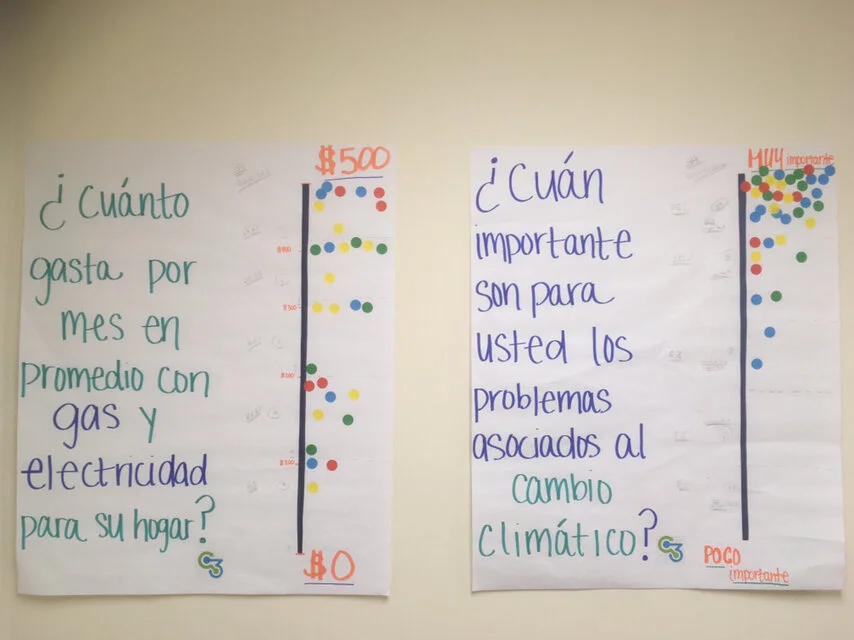 ¿Cuánto
gasta por
mes en
promedio con
gas y
electricidad
para su hogar?
$500
$400
$300
$200
$100
$0
¿Cuán
importante
son para
usted los
problemas
asociados al
cambio
climático?
MUY importante
POCO
importante